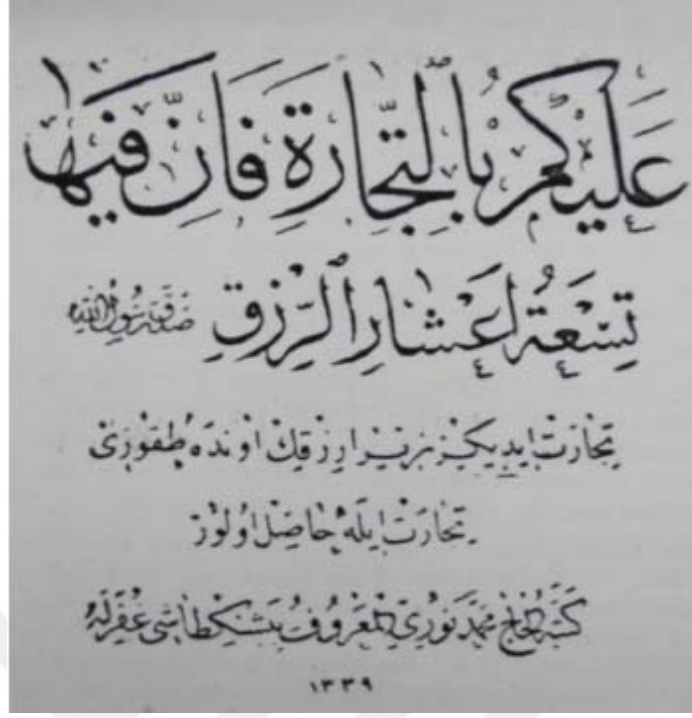 عَلَيْكُمْ بِالتِّجَارَةِ فَاِنَّ فِيْهَا
تِسْعَةُ اَعْشَارِ الرِّزْقِ صَدَقَ رَسُولُ اللّٰه
تجارت ايديكز زيرا رزقك اونده طقوزى
تجارت ايله حاصل اولور
كتبه الحاج محمد نورى المعروف ببشكطاشى غفرله
١٣٣٩